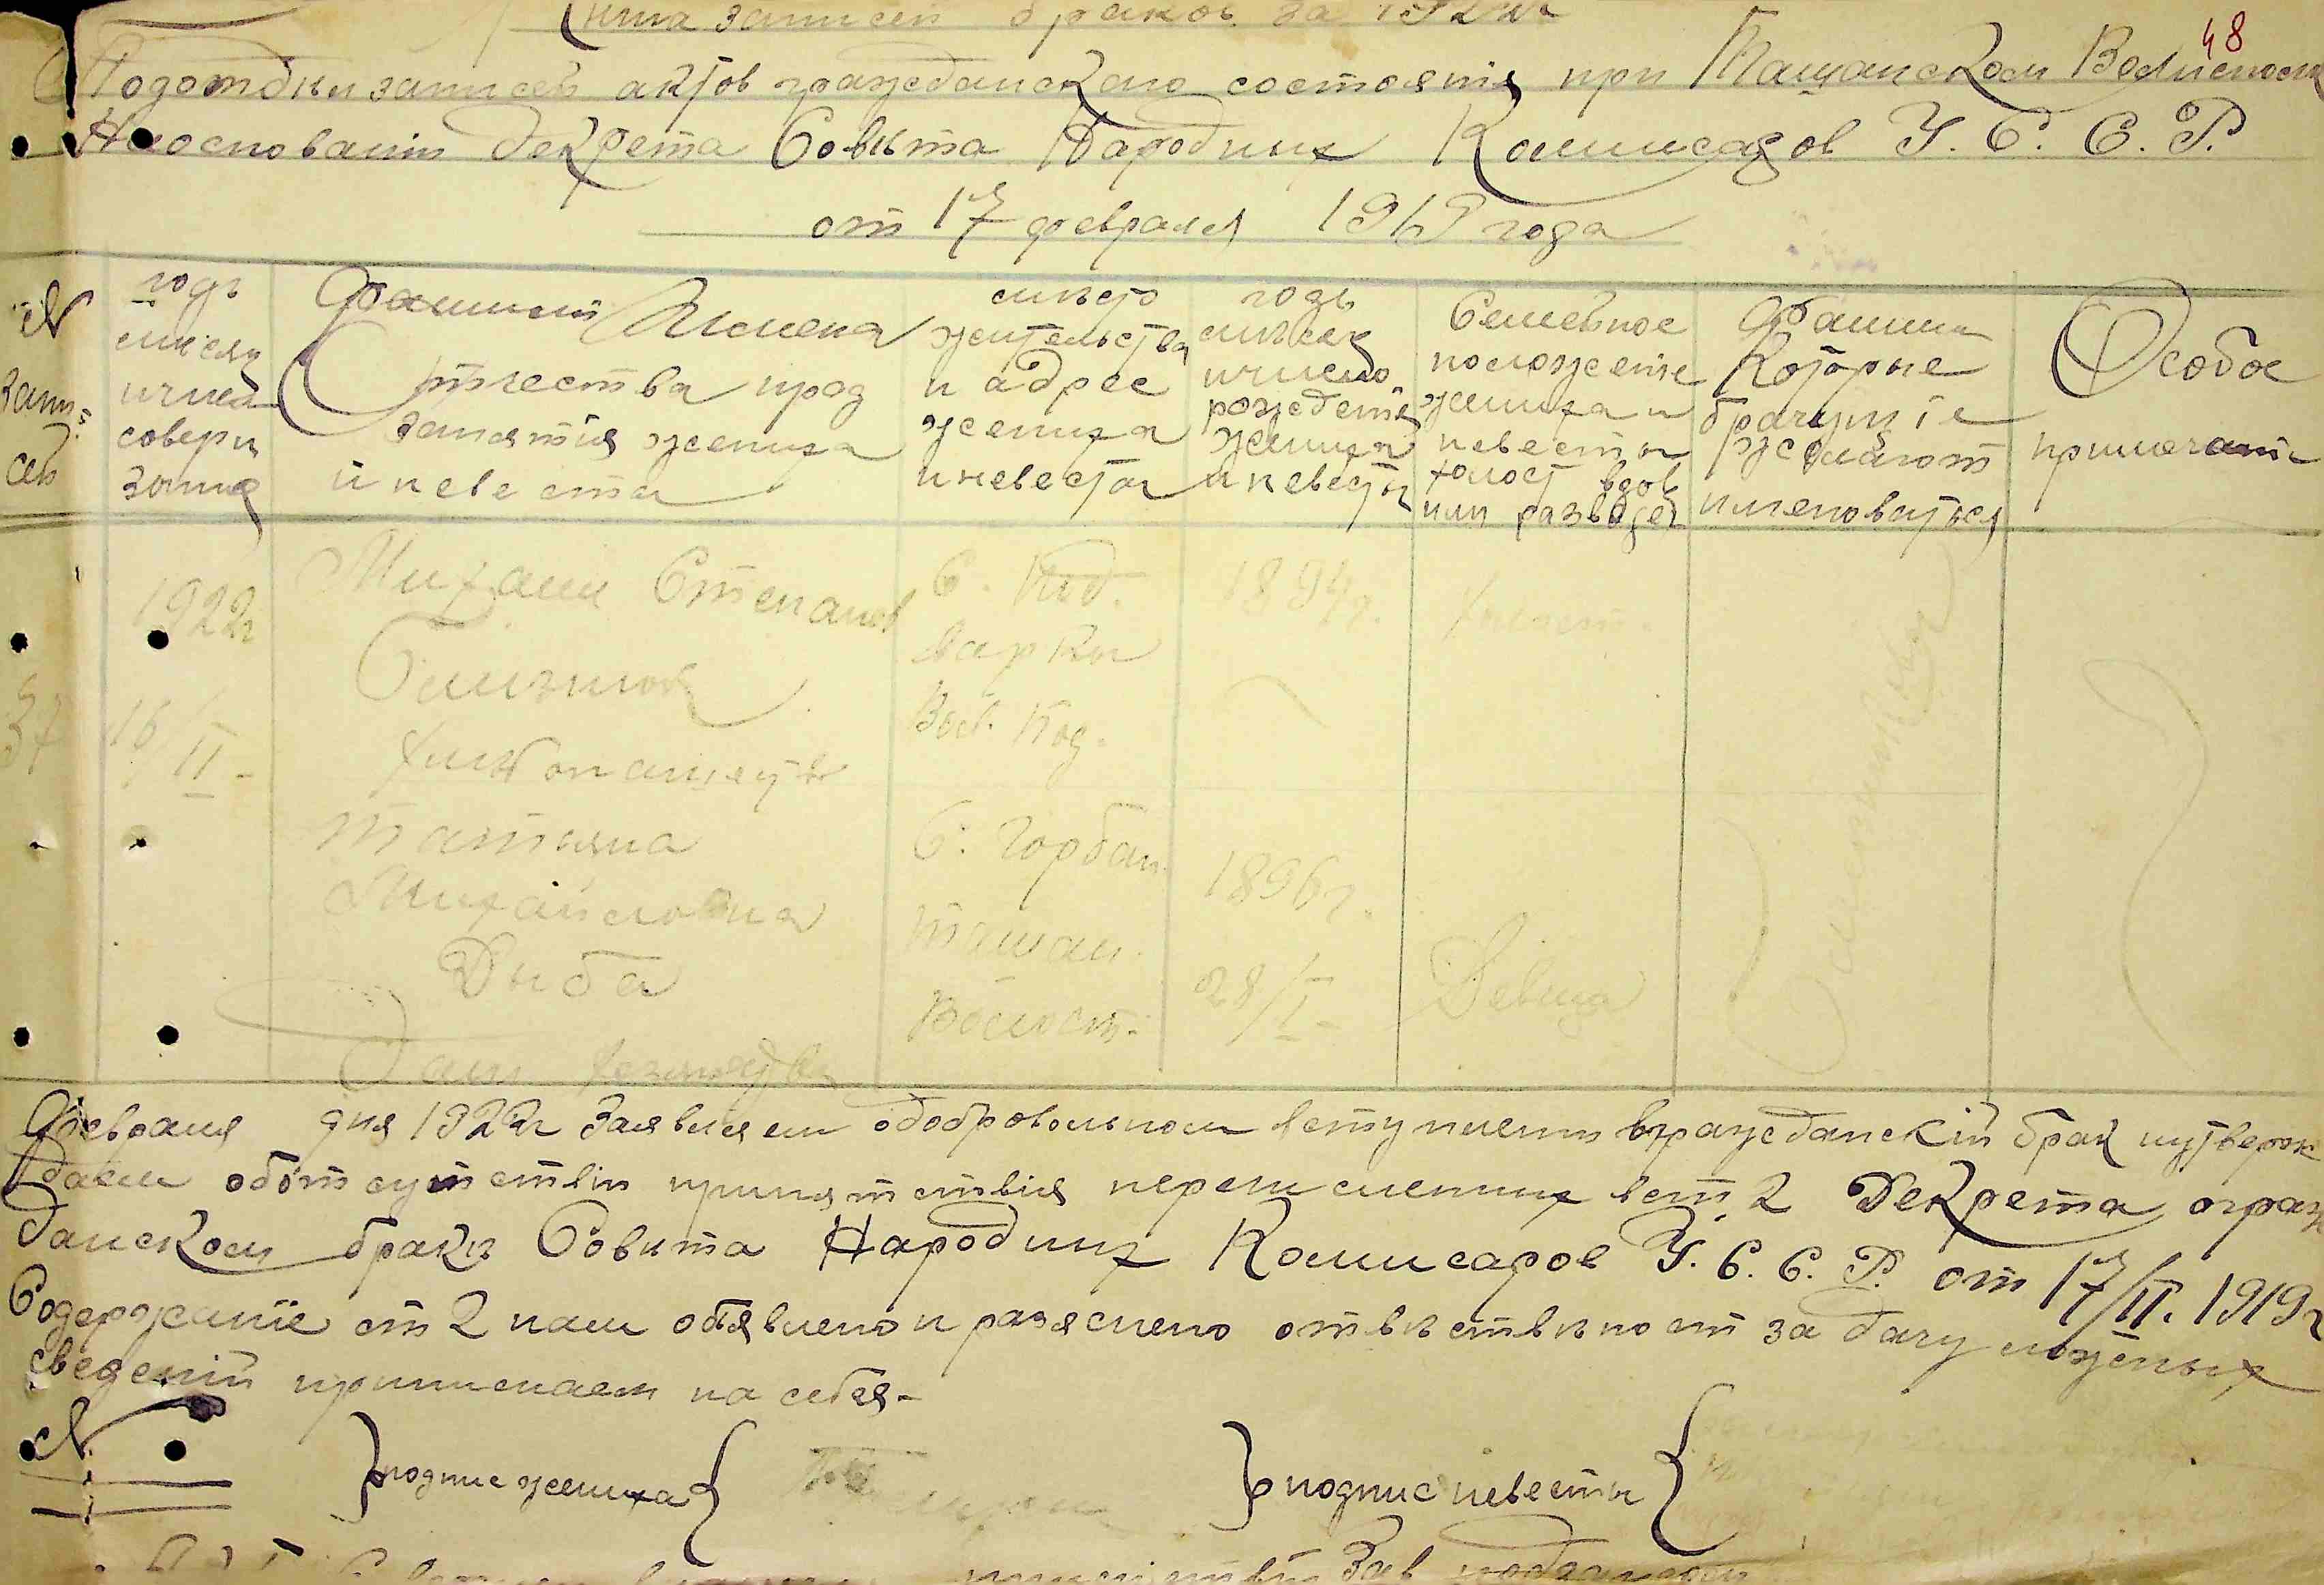 Книга записей браков за 1922г
48
Подотдела записей актов гражданскаго состоянія при Ташанском Волисполк
На основаніи Декрета Совѣта Народных Комисаров У. С. С. Р.
от 17 февраля 1919 года
№
запи
сей
годъ
мѣсяц
и число
соверш
записи
Фамиліи Имена
Отчества род
занятія жениха
и невести
мѣсто
жительства
и адрес
жениха
и невести
годъ
мѣсяц
и число
рождения
жениха
и невести
Семейное
положение
жениха и
невести
холост вдов
или развѣден
Фамилия
Которые
брачущіе
желают
именоваться
Особое
примечание
37
1922г
16/II-
Михаил Степанов
хлибопашец
С. Под.
варки
Вол. Под.
1894г.
холост.
Татьяна
Михайловна
Дзюба
С. Горбан.
Ташан.
Волост.
1896г.
28/I-
Девица
Февраля дня 1922г Заявляем о добровольном вступлении в гражданскій брак и утверж
даем об отсутствіи припятствія перечисленных в ст. 2 Декрета о граж
данском браке Совѣта Народных Комисаров У. С. С. Р. от 17/II. 1919г
Содержаніе ст 2 нам объявлено и разяснено отвѣтствѣност за дачу ложных
сведеній принимаем на себя-
№
подпис жениха
подпис невести